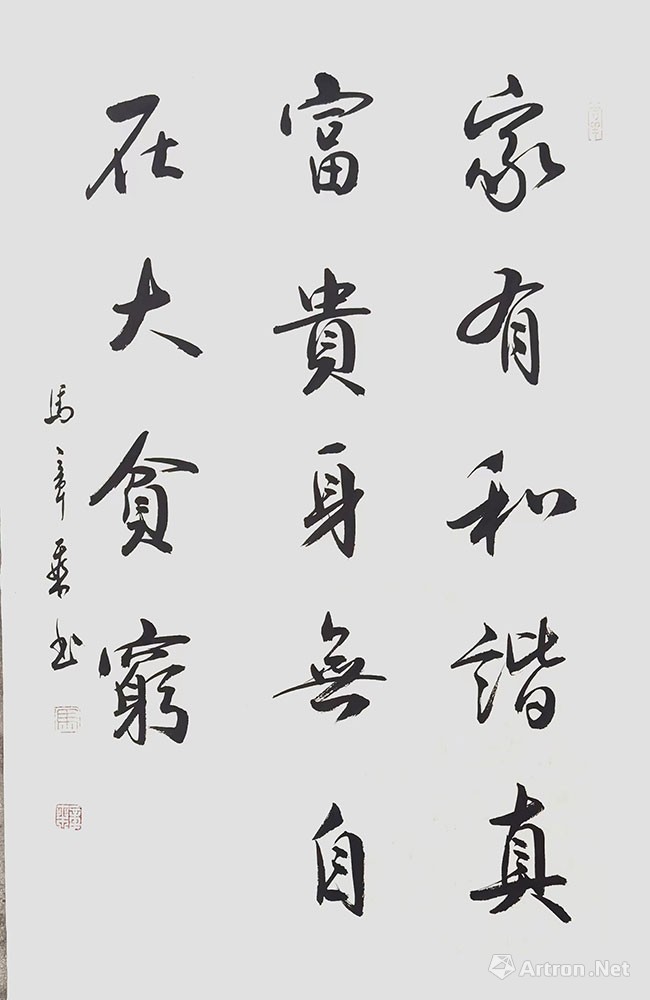 家有和諧真
富貴身無自
在大貧窮
馬章乘書
Artron.Net